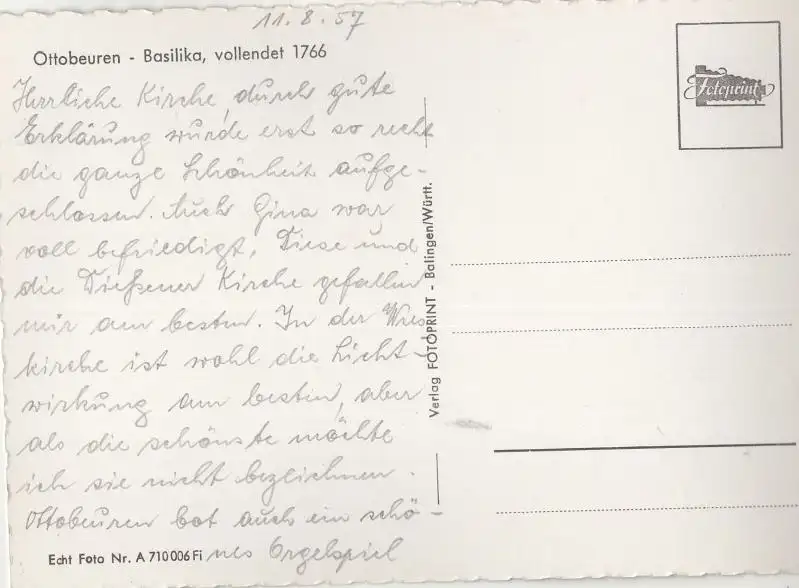 11.8.57
Ottobeuren - Basilika, vollendet 1766
Herrliche Kirche, durch gute
Erklärung wurde erst so recht
die ganze Schönheit aufge-
schlossen. Auch Gina war
voll befriedigt. Diese und
die Dießener Kirche gefallen
mir am besten. In der Wies
kirche ist wohl die Licht-
wirkung am besten, aber
als die schönste möchte
ich sie nicht bezeichnen.
Ottobeuren bot auch ein schö-
nes Orgelspiel
Echt Foto Nr. A 710006 Fi
Verlag FOTOPRINT - Balingen/Württ.
Fotoprint